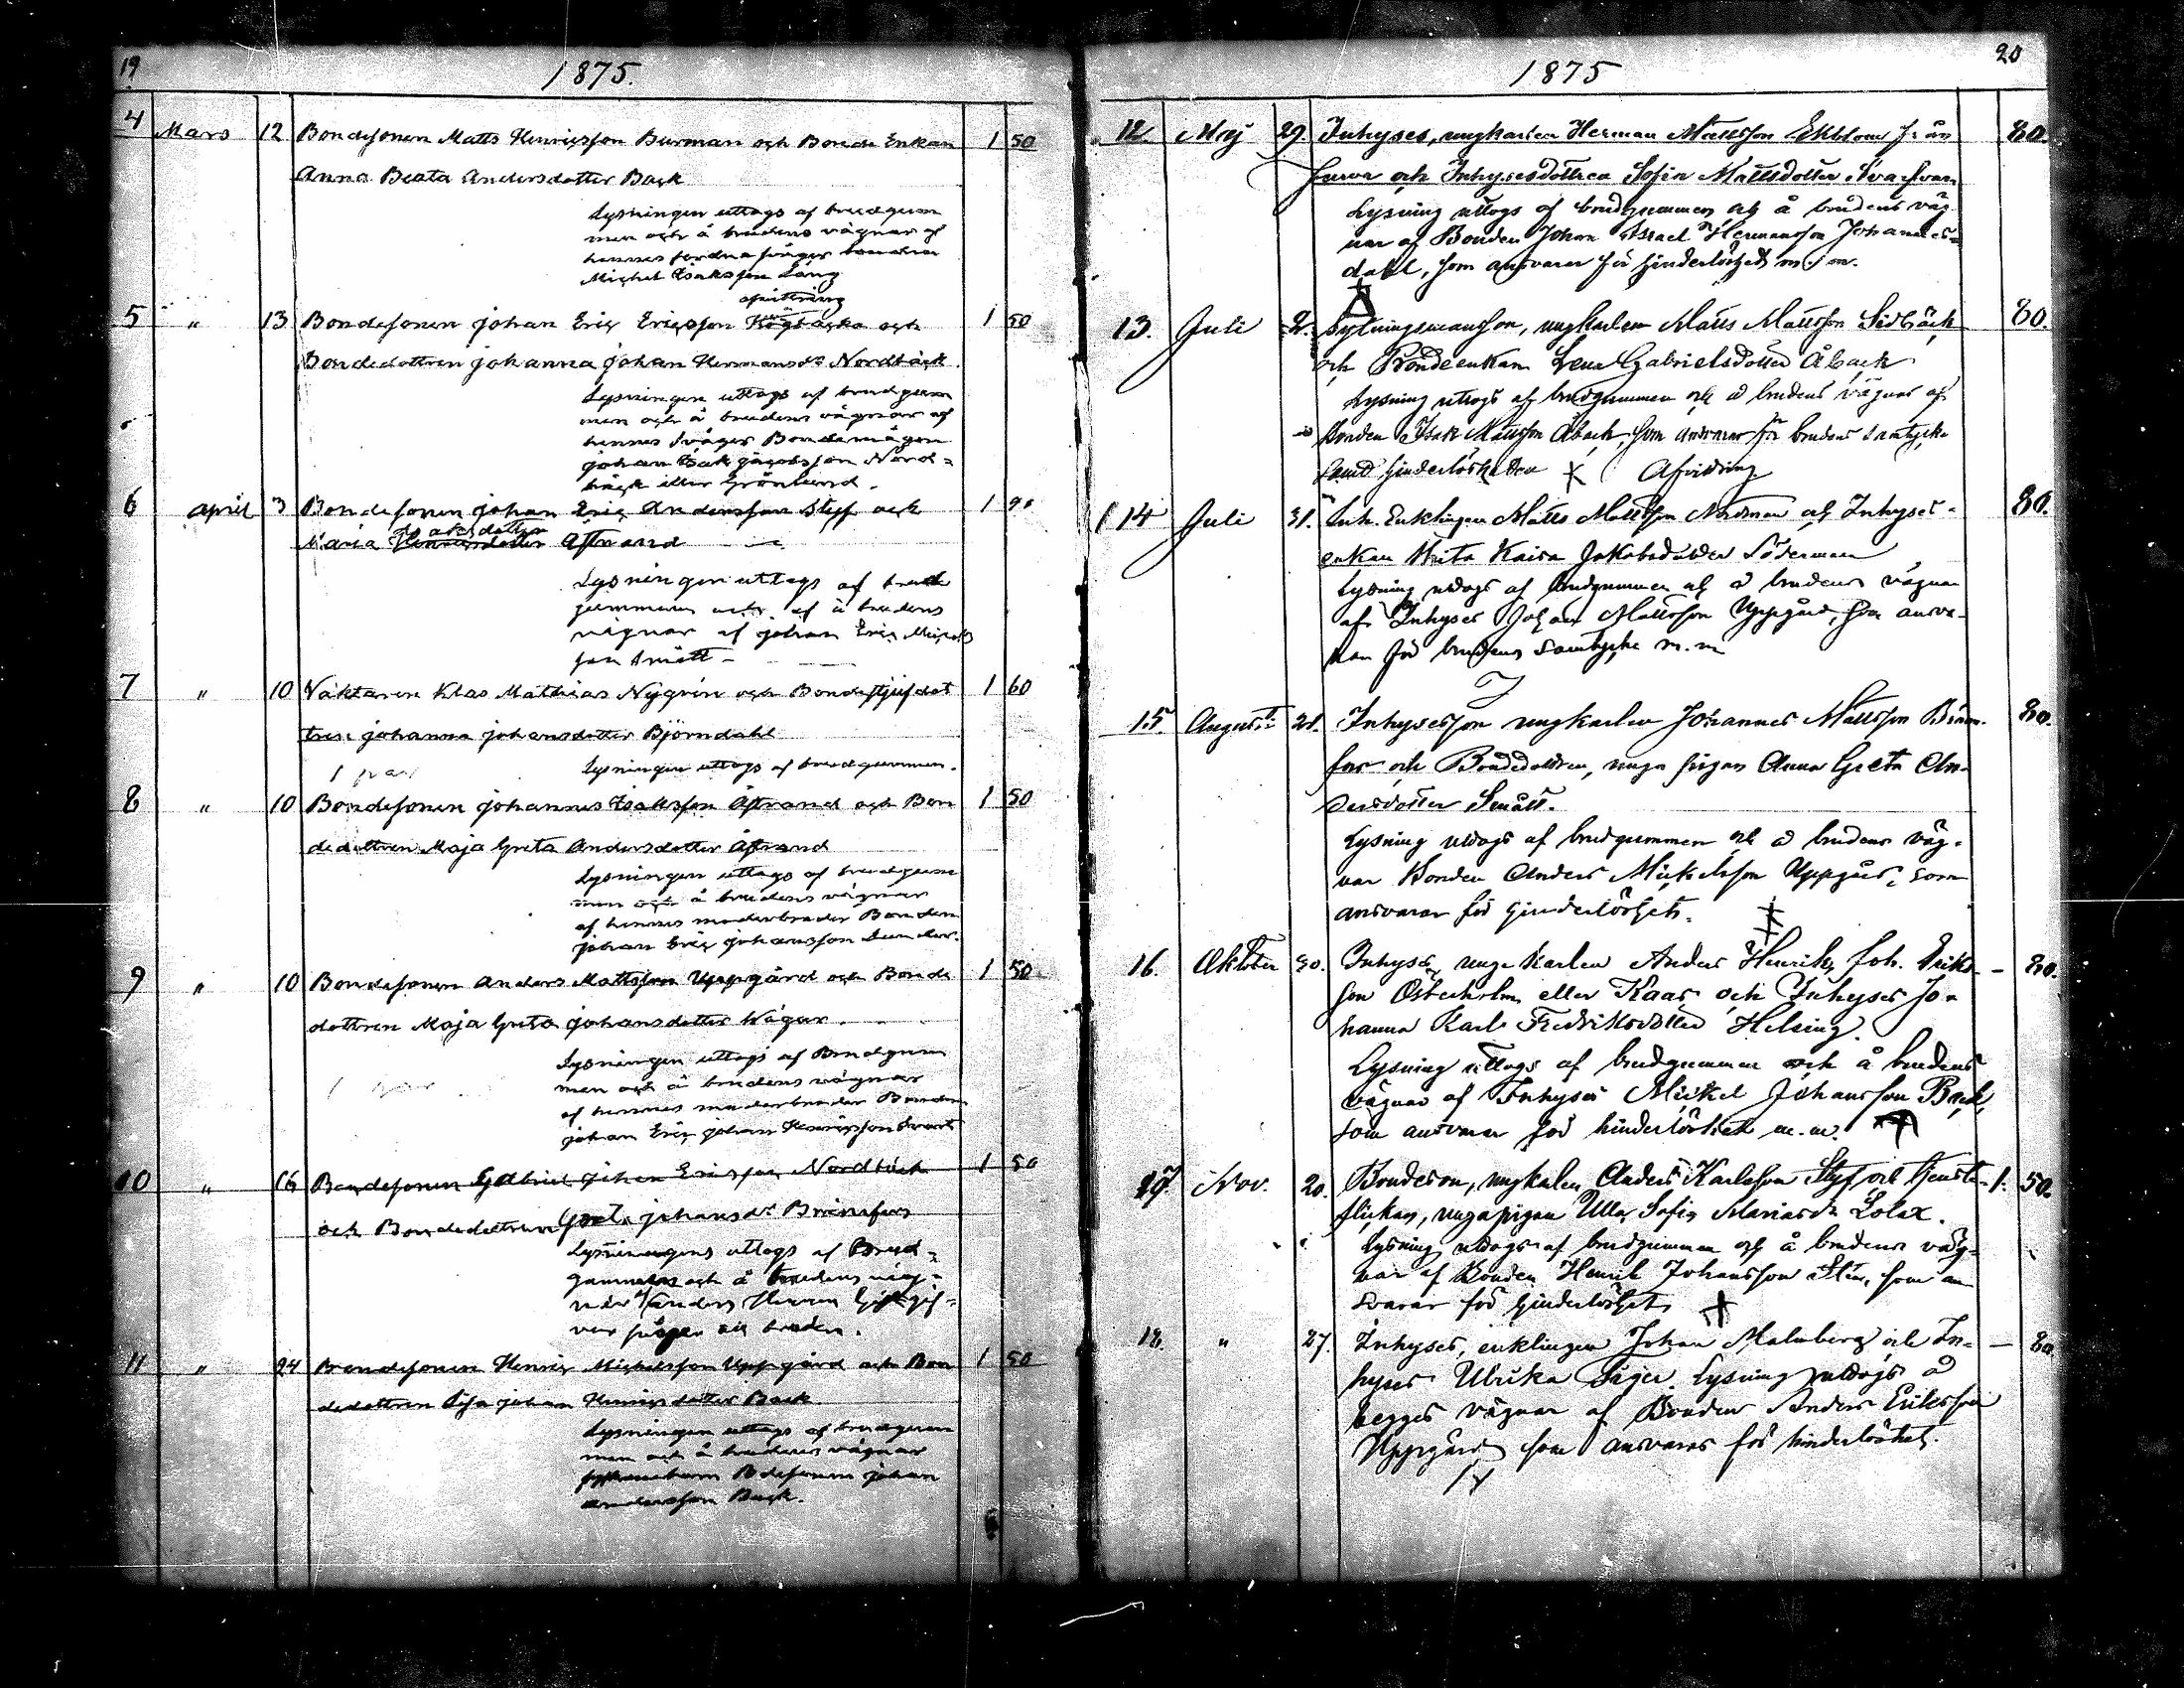 19
1875.
4 Mars 12 Bondesonen Matts Henriçsson Burman och Bonde Enkan 1 50
Anna Beata Andersdotter Back
Lysningen uttogs af brudgum
men och å brudens vägnar af
hennes fordna svåger bonden
Michel Isaksson Lång
afvittring
5 " 13 Bondesonen Johan Eric Ericsson och 1 50
Bondedottren Johanna Johan Hermansdr Nordbäck
Lysningen uttogs af brudgum
men och å brudens vägnar af
hennes svåger Bondemågen
Johan Isak Jacobsson Nord=
bäck eller Grönlund.
6 April 3 Bondesonen Johan Eric Andersson Styf och 1
Maria Isaksdotter Åstrand
Lysningen uttogs af brud
gummen och af å brudens
vägnar af Johan Eric Michels
son Smått –
7 " 10 Väktaren Klas Mathias Nygrén och Bondestjufdot 1 60
tren Johanna Johansdotter Björndahl
1 par Lysningen uttogs af brudgummen.
8 " 10 Bondesonen Johannes Isaksson Åstrand och Bon 1 50
dedottren Maja Greta Andersdotter Åstrand
Lysningen uttogs af brudgum
men och å brudens vägnar
af hennes moderbroder Bonden
Johan Eric Johansson
9 " 10 Bondesonen Anders Mattsson Uppgård och Bonde 1 50
dottren Maja Greta Johansdotter Wägar.
Lysningen uttogs af Brudgum
1 par men och å brudens vägnar
af hennes moderbroder Bonden
Johan Eric Johan Henricsson Svart
10 " 16 Bondesonen Gabriel Johan Ericsson Nordbäck 1 50
och Bondedottren Greta Johansdr Brännfors
Lysningens uttogs af Brud=
gummen och å brudens väg=
nar af Anders Herman
var svåger till bruden.
11 " 24 Bondesonen Henric Michelsson Uppgård och Bon 1 50
dedottren Lisa Johan Henricsdotter Back
Lysningen uttogs af brudgum
men och å brudens vägnar
Bdesonen Johan
Andersson Back.
20
1875
12. Maj 29. Inhyses, ungkarlen Herman Mattsson Ekblom från 80.
och Inhysesdottren Sofia Mattsdotter
Lysning uttogs af brudgummen och å brudens väg
nar af Bonden Johan Israel Hermansson Johannes=
dahl, som ansvarar för hinderlöshet m. m.
13. Juli 2. Sytningsmansson, ungkarlen Matts Mattsson Sidbäck 80.
och Bondeenkan Lena Gabrielsdotter Åback
Lysning uttogs af brudgummen och å brudens vägnar af
Bonden Isak Mattsson Åback, som ansvarar för brudens samtycke
samt hinderlösheten Afvittring
14 Juli 31. Inh. Enklingen Matts Mattsson Nordman och Inhyses- 80.
enkan Brita Kaisa Jakobsdotter Söderman
Lysning uttogs af brudgummen och å brudens vägnar
af Inhyses Johan Mattsson Uppgård, som ansva-
rar för brudens samtycke m. m
15. Augusti 21. Inhysesson ungkarlen Johannes Mattsson Bränn- 80.
fors och Bondedottren, unga pigan Anna Greta An-
dersdotter Smått.
Lysning uttogs af brudgummen och å brudens väg-
nar Bonden Anders Mickelsson Uppgård, som
ansvarar för hinderlöshet.
16. Oktober 30. Inhyses unge Karlen Anders Henrik Joh. Eriks- – 80.
son Österholm eller Kaas och Inhyses Jo-
hanna Karl Fredriksdotter Helsing.
Lysning uttogs af brudgummen och å brudens
vägnar af Inhyses Mickel Johansson Back,
som ansvarar för hinderlöshet m. m.
17. Nov. 20. Bondeson, ungkarlen Anders Karlsson Styf och tjenste- 1. 50.
flickan, unga pigan Ulla Sofia Mariasdr Lolax.
Lysning uttogs af brudgummen och å brudens väg-
nar af Bonden Henrik Johansson Sten, som an
svarar för hinderlöshet
18. " 27. Inhyses, enklingen Johan Malmberg och In- – 80
hyses Ulrika Lysning uttogs å
begges vägnar af Bonden Anders Eriksson
Uppgård som ansvarar för hinderlöshet.